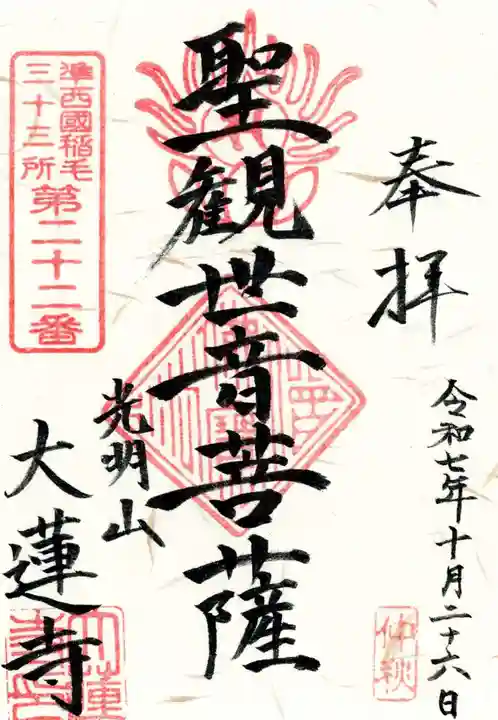 奉拝
令和七年十月二十六日
仲秋
聖観世音菩薩
準西國稲毛
三十三所
第二十二番
光明山
大蓮寺